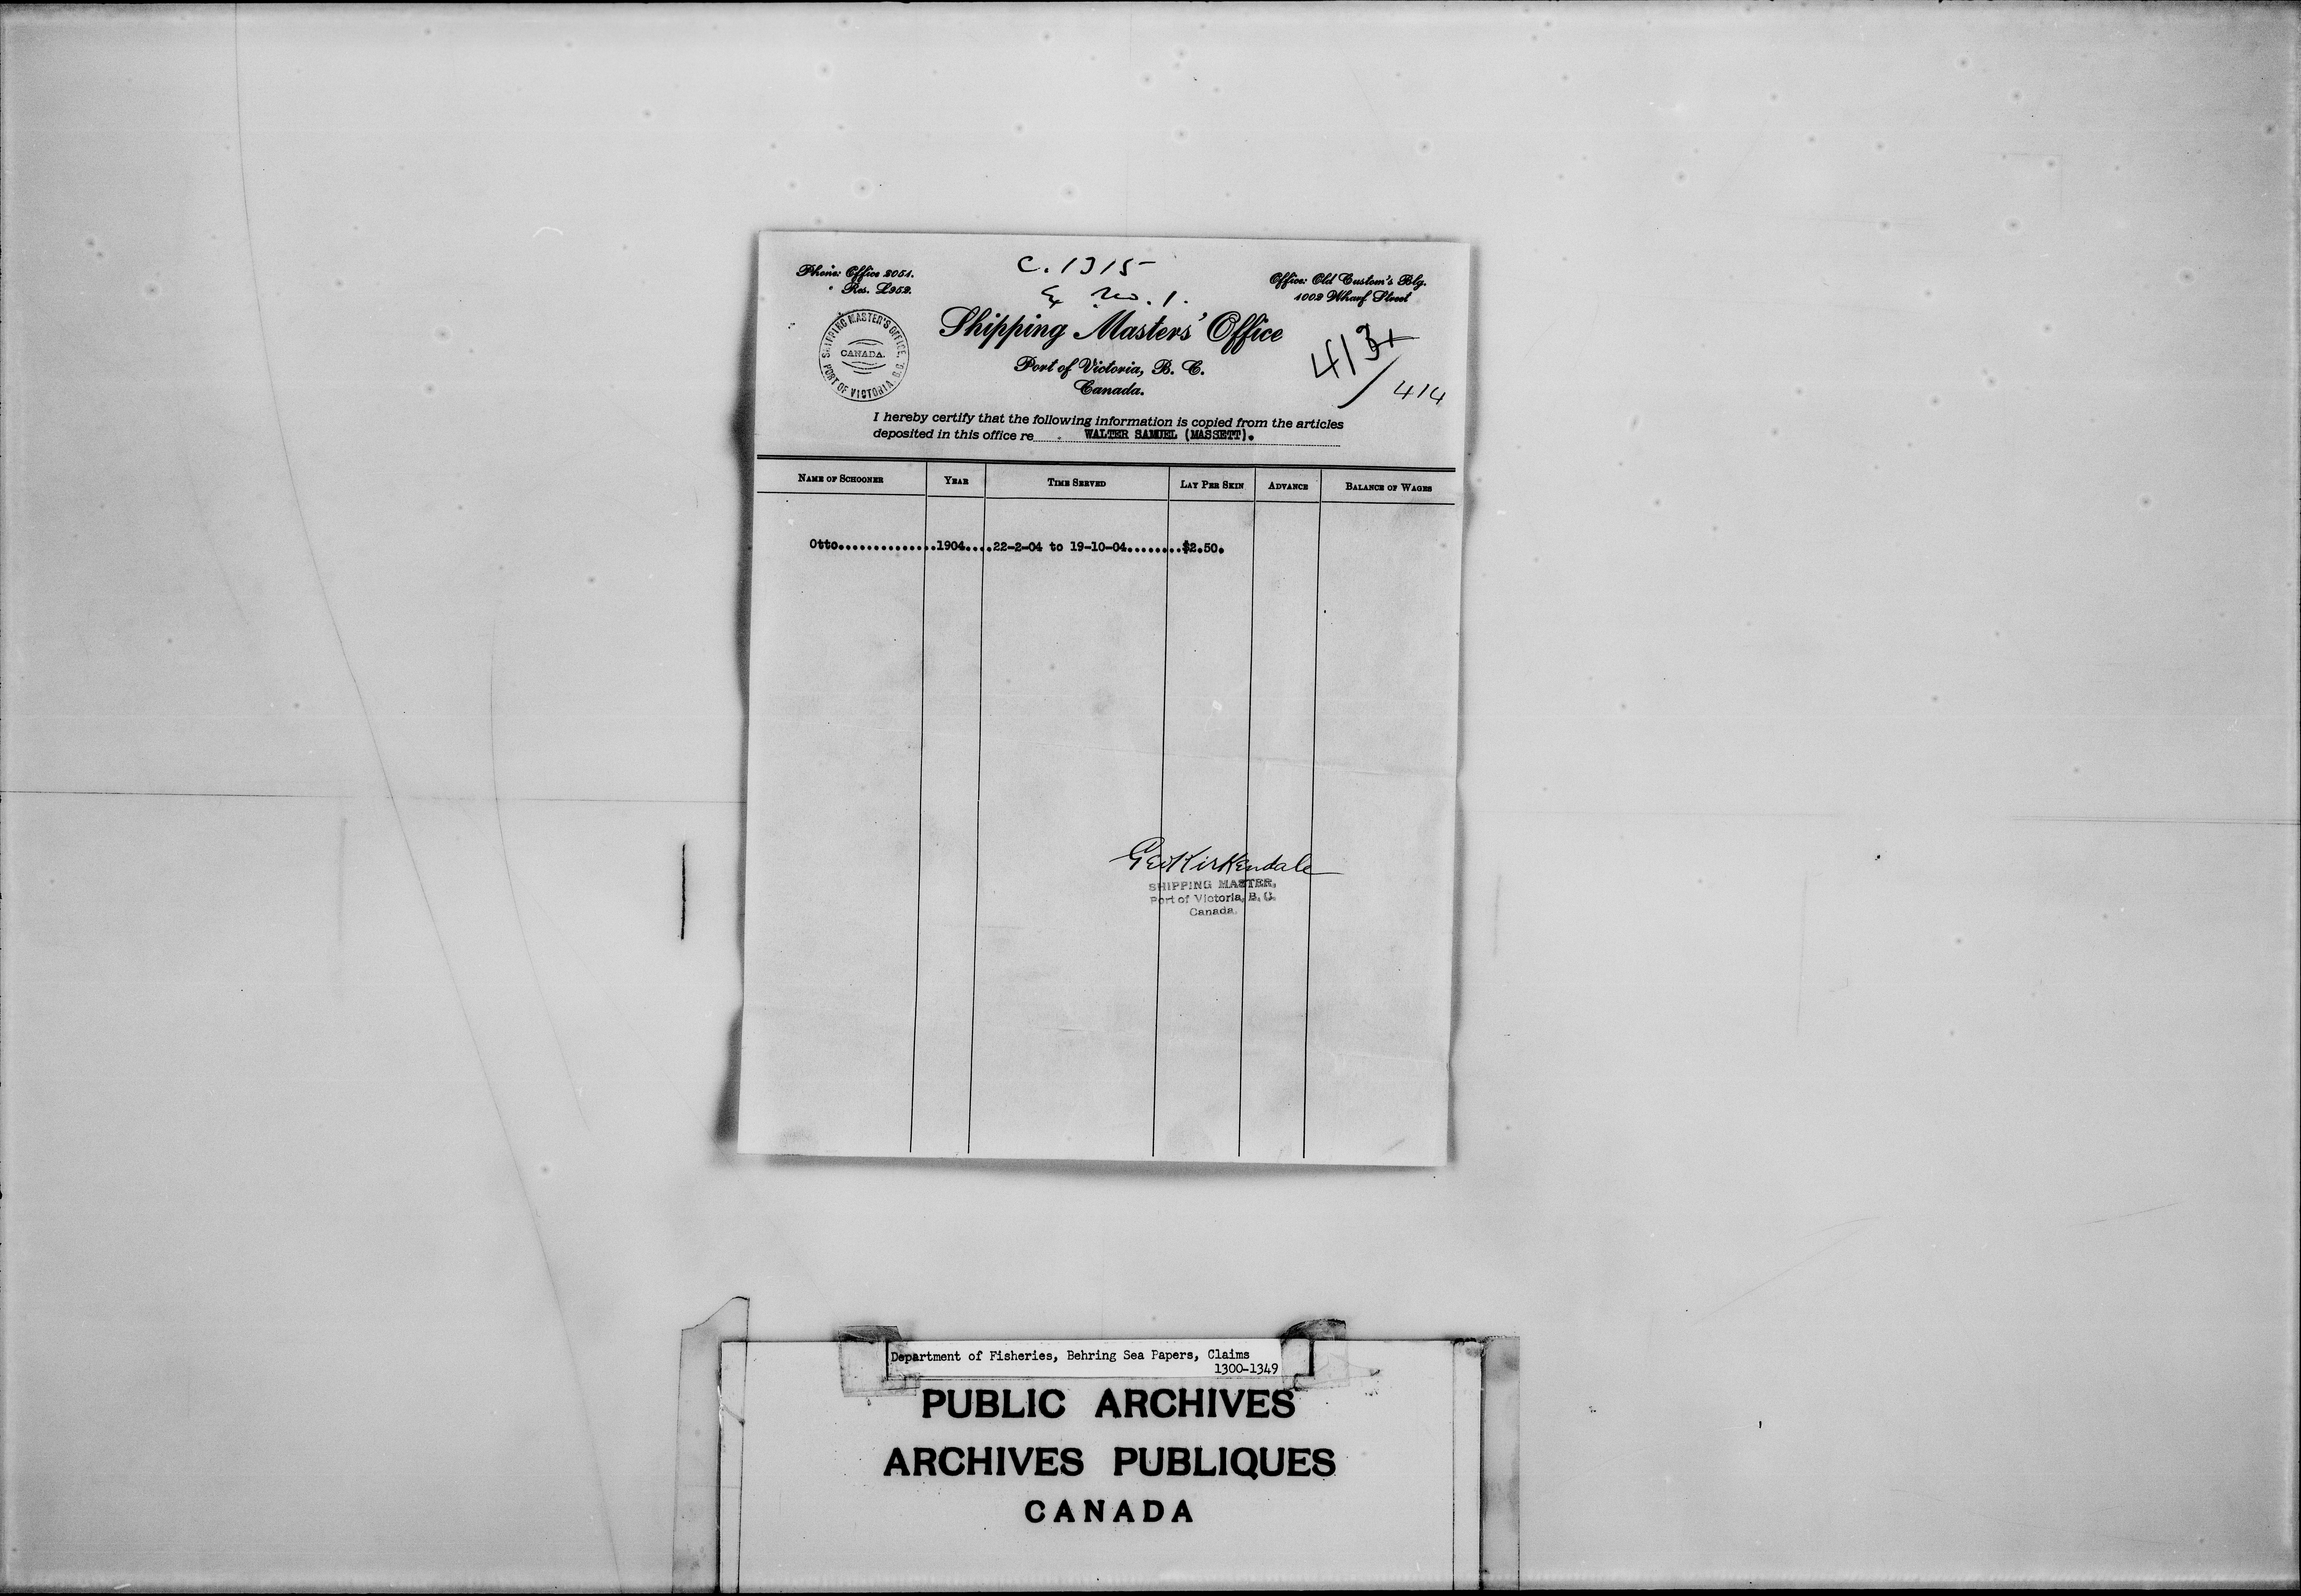 C. 1315
Ex No. 1.
Phone: Office 2051.
" Res. L252.
Office: Old Custom's Blg.
1002 Wharf Street
Shipping Masters' Office
Port of Victoria, B. C.
Canada.
SHIPPING MASTER'S OFFICE,
CANADA.
PORT OF VICTORIA, B.C.
413
414
I hereby certify that the following information is copied from the articles
deposited in this office re WALTER SAMUEL (MASSETT).
NAME OF SCHOONER YEAR TIME SERVED LAY PER SKIN ADVANCE BALANCE OF WAGES
Otto..............1904....22-2-04 to 19-10-04........$2.50.
Geo Kirkendale
SHIPPING MASTER,
Port of Victoria, B. C.
Canada.
Department of Fisheries, Behring Sea Papers, Claims
1300-1349
PUBLIC ARCHIVES
ARCHIVES PUBLIQUES
CANADA